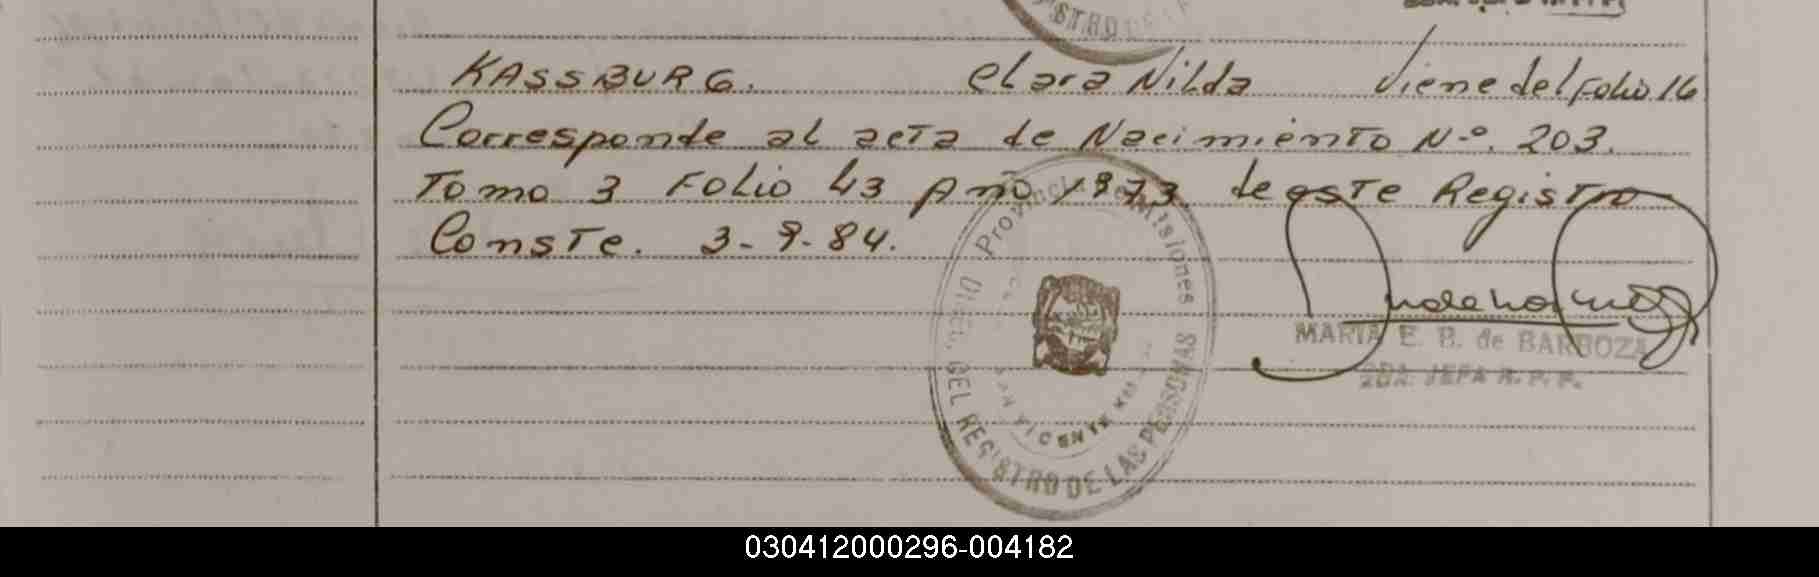 STRO DE LA
KASSBURG. Clara Nilda Viene del Folio 16
Corresponde al acta de Nacimiento Nº. 203.
Tomo 3 Folio 43 Año 1973. de este Registro
Conste. 3-9-84.
Provincia de Misiones
DIREC. DEL REGISTRO DE LAS PERSONAS
SAN VICENTE KM
MARIA E. B. de BARBOZA
2DA. JEFA R. P. P.
030412000296-004182